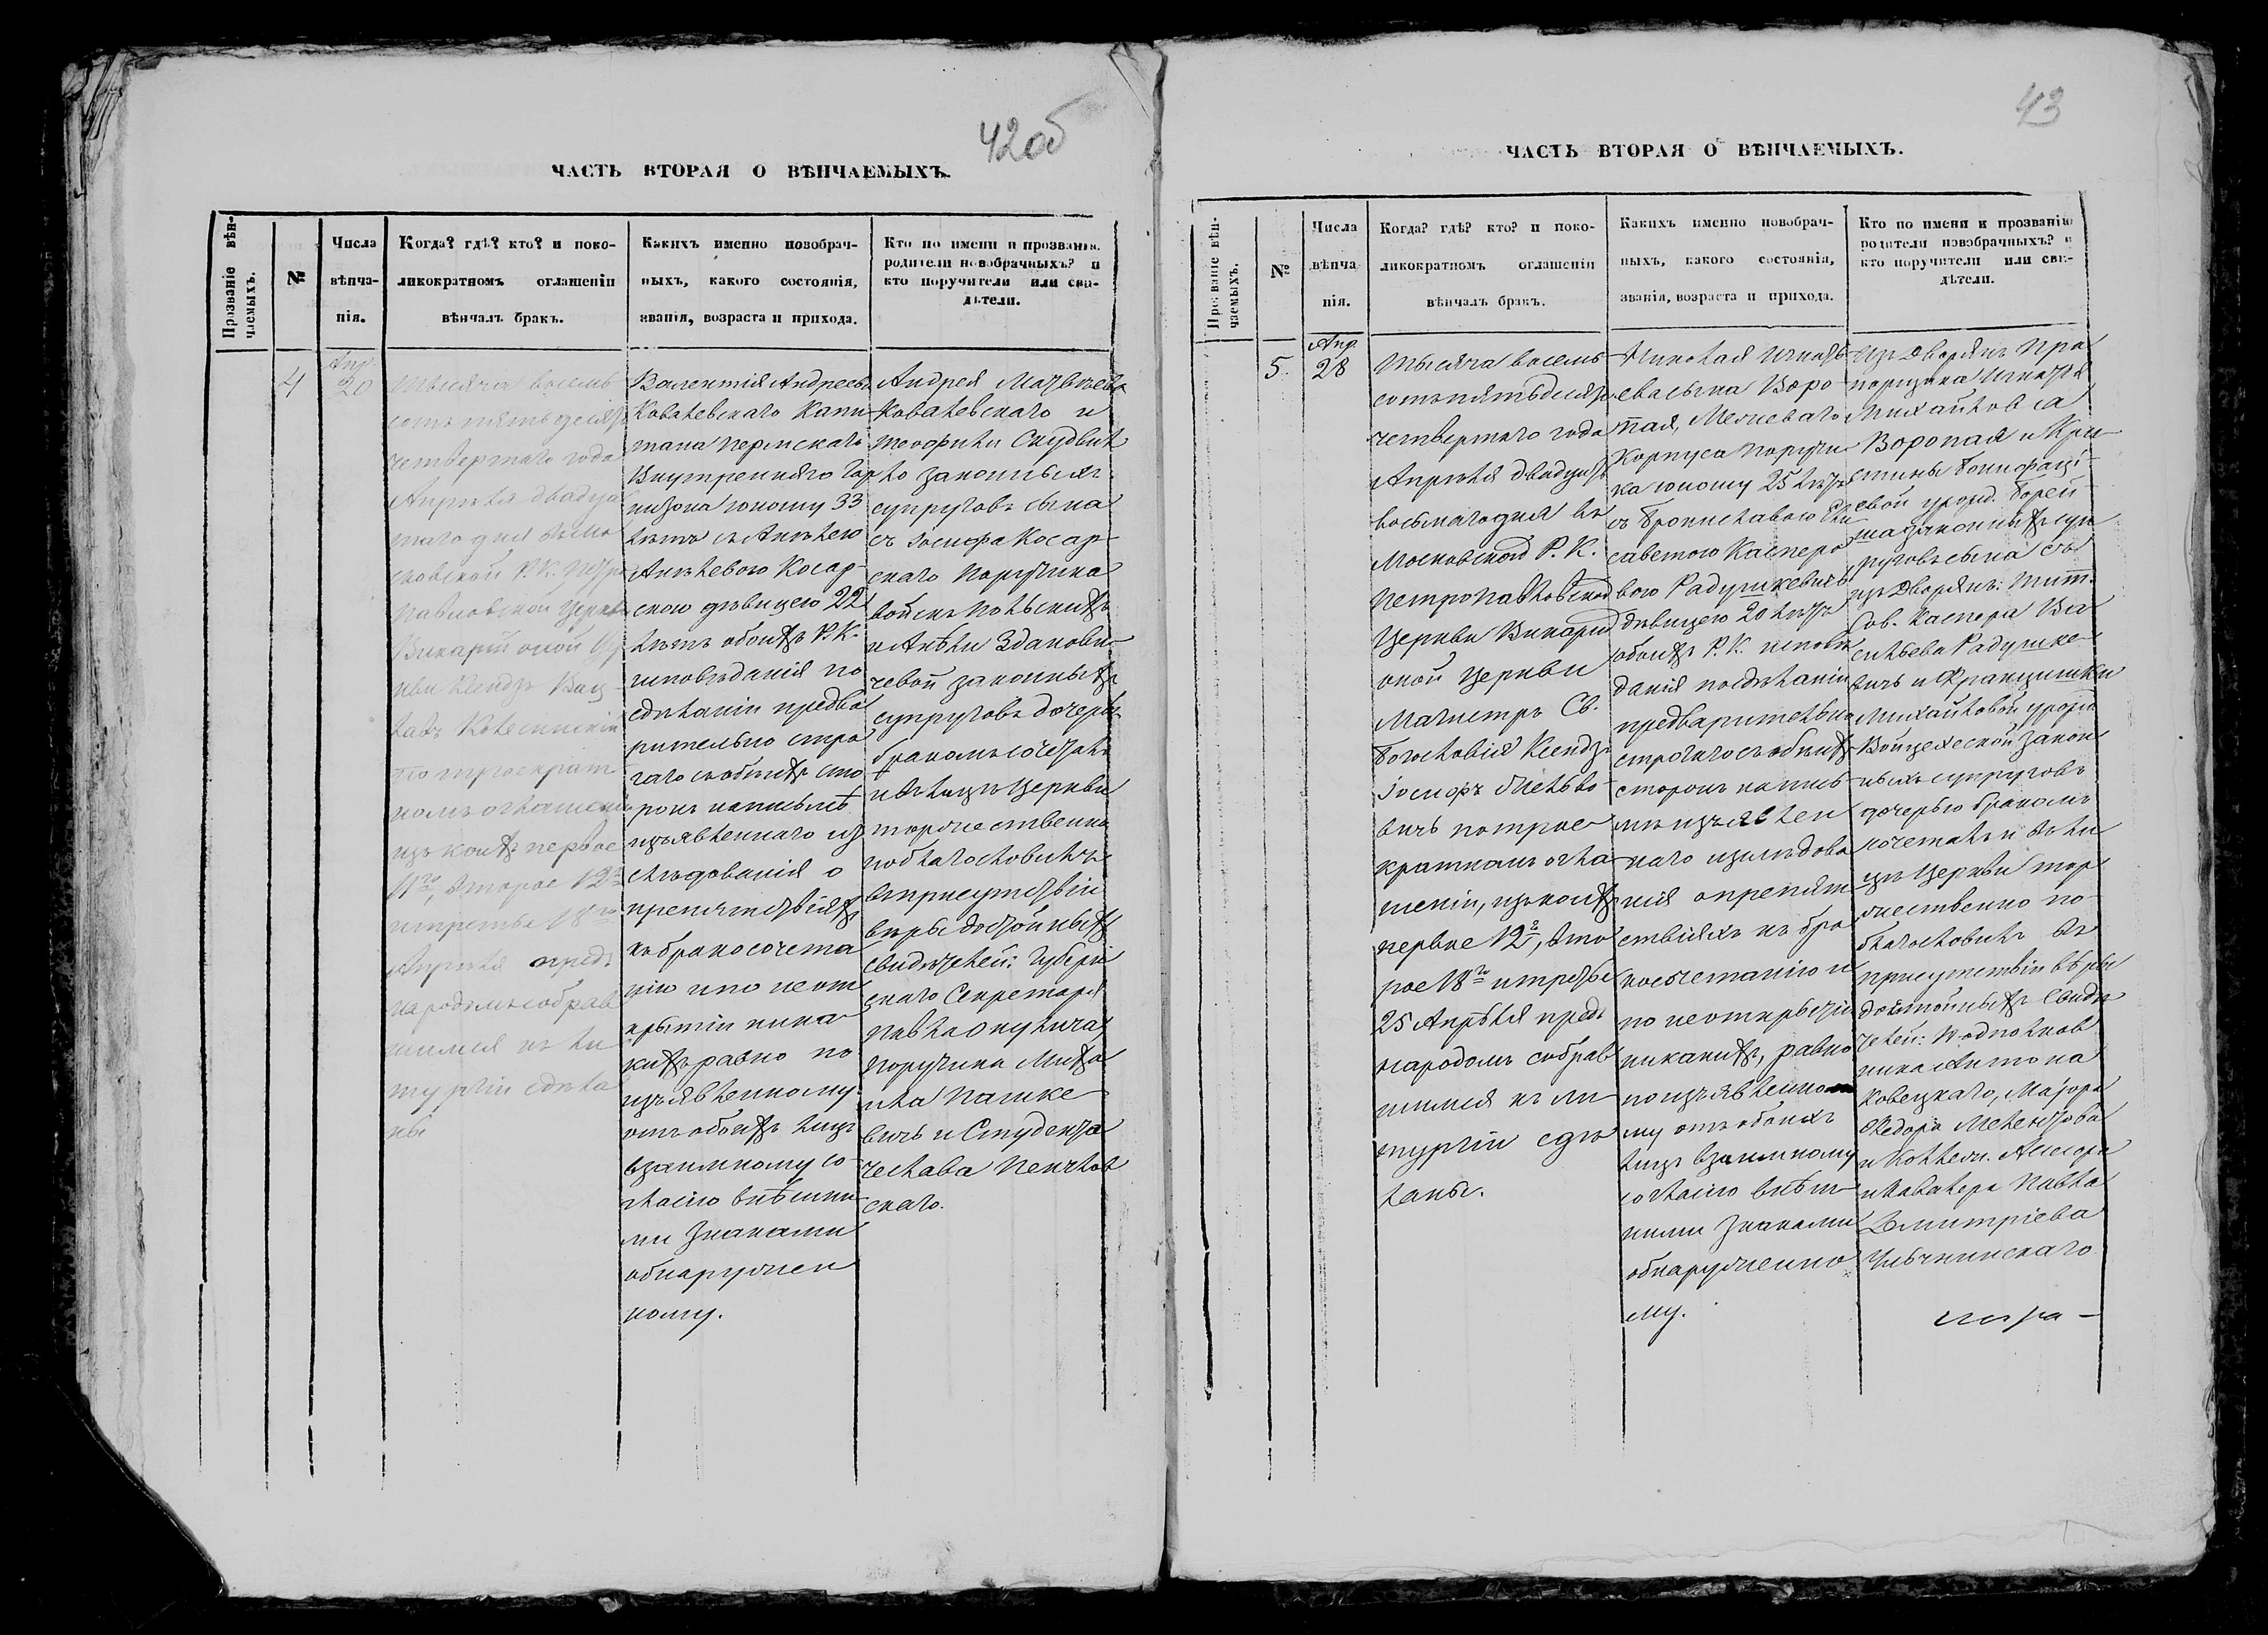 42об
ЧАСТЬ ВТОРАЯ О ВѢНЧАЕМЫХЪ.
Прозваніе вѣн-
чаемыхъ.
№
Числа
вѣнча-
нія.
Когда? гдѣ? кто? и поко-
ликократномъ оглашеніи
вѣнчалъ бракъ.
Какихъ именно новобрач-
ныхъ, какого состоянія,
званія, возраста и прихода.
Кто по имени и прозванію
родители новобрачныхъ? и
кто поручители или сви-
дѣтели.
4
Апр.
20
Тысяча восемь
сотъ пятьдесятъ
четвертаго года
Апрѣля двадца
таго дня въ Мо
сковской Р. К. Петро
павловской Церкви
Викарій оной Цер
кви Ксендзъ Вац
лавъ
По троекрат
номъ оглашеніи
изъ коихъ первое
11го, второе 12го
и третье 18го
Апрѣля предъ
народомъ собрав
шимся къ ли
тургіи сдѣла
ны
Валентія Андреева
Ковалевскаго Капи
тана Пермскаго
Внутренняго Гар
низона юношу 33
лѣтъ съ Анѣлею
Анѣлевою Косар
скою дѣвицею 22
лѣтъ обоихъ Р. К.
исповѣданія по
сдѣланіи предва
рительно стро
гаго съ обѣихъ сто
ронъ написьмѣ
изъявленнаго из
слѣдованія о
препятствіяхъ
къ бракосочета
нію и по неот
крытіи ника
кихъ равно по
изъявленному
отъ обоихъ лицъ
взаимному со
гласію внѣшни
ми знаками
обнаружен
ному.
Андрея Матвѣева
Ковалевскаго и
Теофили Скудвил
ло законныхъ
супруговъ сына
съ Іосифа Косар
скаго Поручика
войскъ польскихъ
и Анѣли Зданови
чевой законныхъ
супруговъ дочерью
бракомъ сочеталъ
и въ лицѣ Церкви
торжественно
поблагословилъ
въ присутствіи
вѣры достойныхъ
Свидѣтелей: Губерн
скаго Секретаря
Павла Окулича,
Поручика Миха
ила Пашке
вичъ и Студента
Чеслава Пенчков
скаго.
43
ЧАСТЬ ВТОРАЯ О ВѢНЧАЕМЫХЪ.
Прозваніе вѣн-
чаемыхъ.
№
Числа
вѣнча
нія.
Когда? гдѣ? кто? и поко-
ликократномъ оглашеніи
вѣнчалъ бракъ.
Какихъ именно новобрач-
ныхъ, какого состоянія,
званія, возраста и прихода.
Кто по имени и прозванію
родители новобрачныхъ? и
кто поручители или сви-
дѣтели.
5
Апр.
28
Тысяча восемь
сотъ пятьдесятъ
четвертаго года
Апрѣля двадцать
восьмаго дня въ
Московской Р. К.
Петропавловской
Церкви Викарій
оной Церкви
Магистръ Св.
Богословія Ксендзъ
Іосифъ
вичъ по трое
кратномъ огла
шеніи, изъ коихъ
первое 12го, вто
рое 18го и третье
25 Апрѣля предъ
народомъ собрав
шимся къ ли
тургіи сдѣ
ланы.
Николая Игнать
ева сына Воро
пая, Межеваго
Корпуса Поручи
ка юношу 25 лѣтъ
съ Брониславою Ели
саветою Касперо
вою Радушкевичъ
дѣвицею 20 лѣтъ
обоихъ Р. К. исповѣ
данія по сдѣланіи
предварительно
строгаго съ обѣихъ
сторонъ напись
мѣ изъявлен
наго изслѣдова
нія о препят
ствіяхъ къ бра
косочетанію и
по неоткрытіи
никакихъ, равно
по изъявленно
му отъ обоихъ
лицъ взаимному
согласію внѣш
ними знаками
обнаруженно
му.
Изъ Дворянъ Пра
порщика Игнатія
Михайлова
Воропая и Кри
стины Бонифаці
евой урожд. Борей
ша законныхъ суп
руговъ сына съ
изъ Дворянъ: Тит.
Сов. Каспера Ва
сильева Радушке
вичъ и Францишки
Михайловой урожд.
Войцеховской закон
ныхъ супруговъ
дочерью бракомъ
сочеталъ и въ ли
цѣ Церкви тор
жественно по
благословилъ въ
присутствіи вѣры
достойныхъ Свидѣ
телей: Подполков
ника Антона
Ковецкаго, Маіора
Ѳедора
и Коллежс. Ассесора
и Кавалера Павла
Дмитріева